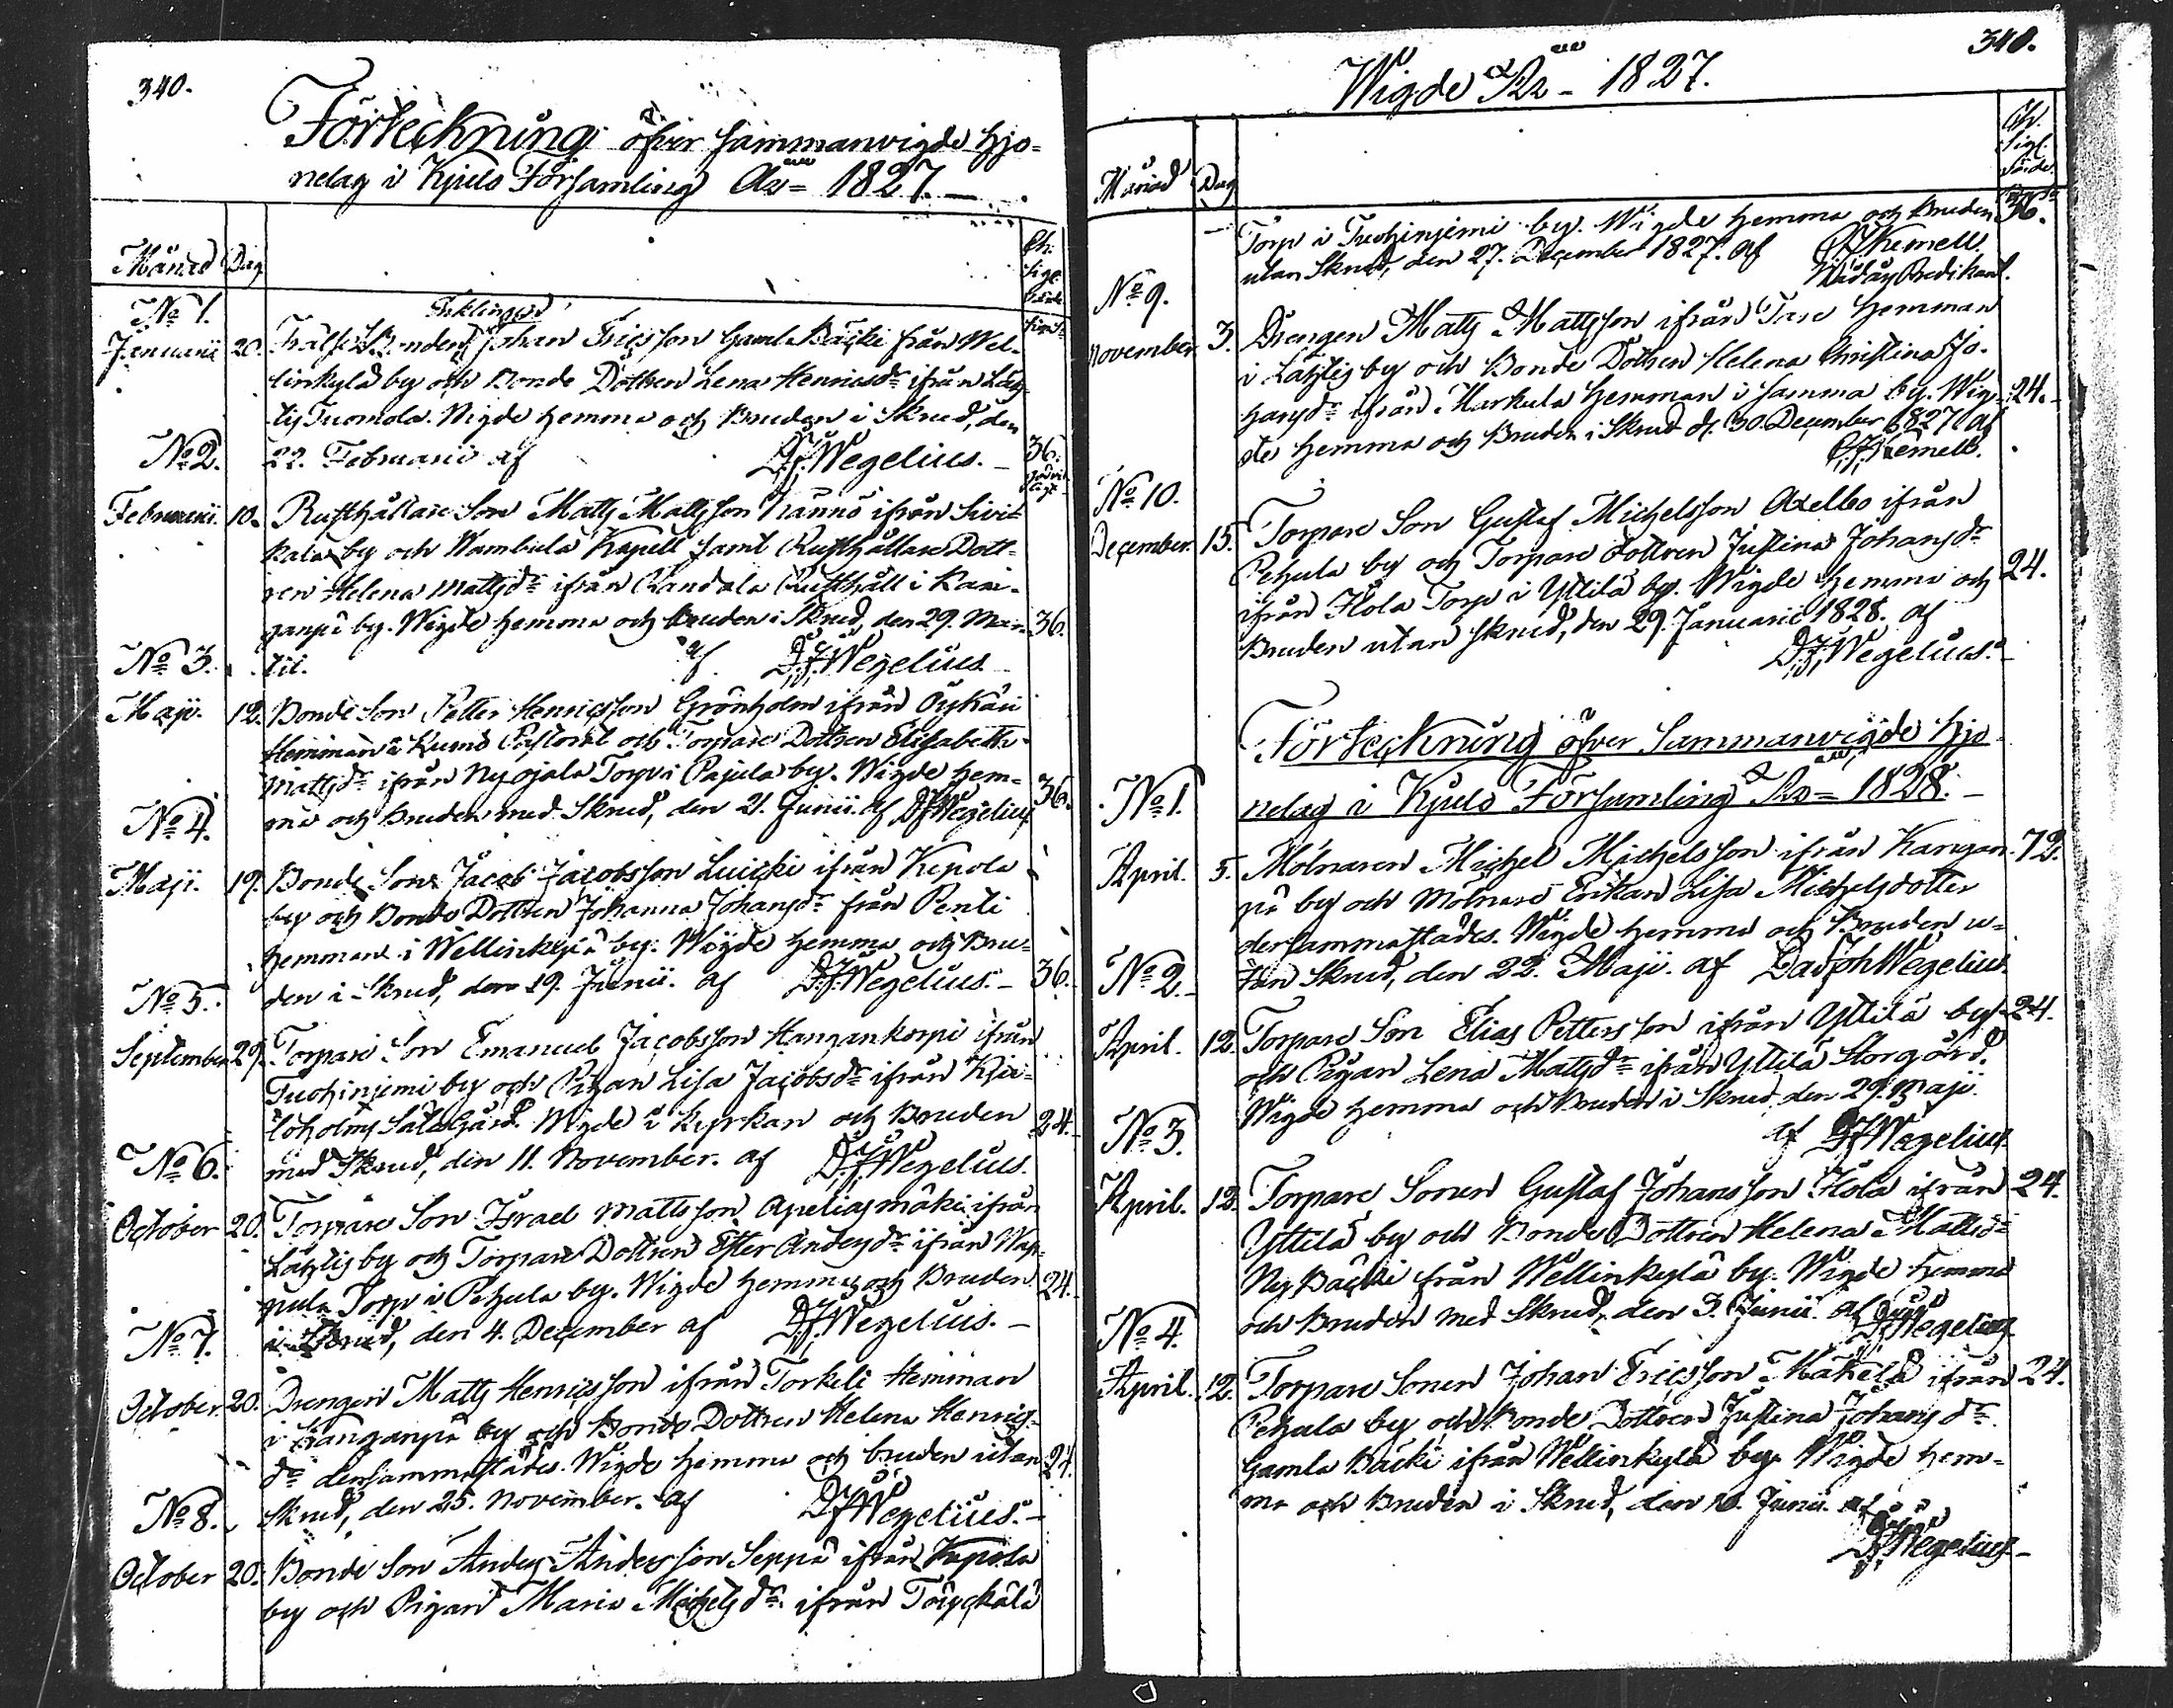 340.
Förteckning öfver sammanvigde hjo-
nelag i Kjulo Församling Aō = 1827.
Månad Dag
Ch.
Sigl.
N⁰ 1.
Enklingen
Januarii 20. Frälse Bonden Johan Ericsson Gamla Bäcki från Wel-
linkylä by och Bonde Dottren Lena Henricsdr ifrån Lätz-
tis Tuomola. Vigde hemma och Bruden i Skrud, den
N⁰ 2. 22. Februarii af D.J. Wegelius. 36.
Februarii. 10. Rusthållare Son Matts Mattsson Nanno ifrån Sivi-
kala by och Wambula Kapell samt Rusthållare Dott-
ren Helena Mattsdr ifrån Randala Rusthåll i Kan-
ganpä by. Wigde hemma och Bruden i Skrud, den 29. Mar- 36.
N⁰ 3. tii. af D.J. Wegelius
Maji. 12. Bonde Son Petter Henricsson Grönholm ifrån
Hemman i Kumo Pastorat och Torpare Dottren Elisabeth
Mattsdr ifrån Nyojala Torp i Pajula by. Wigde hem- 36.
N⁰ 4. ma och Bruden med Skrud, den 21. Junii. af DJWegelius
Maji. 19. Bonde Son Jacob Jacobsson Luicki ifrån Kepola
by och Bonde Dottren Johanna Johansdr från Penti
hemman i Wellinkylä by. Wigde hemma och Bru-
N⁰ 5. den i Skrud, den 19. Junii. af D.J. Wegelius. 36.
September 29. Torpare Son Emanuel Jacobsson Hangankorpi ifrån
Tuohiniemi by och Pigan Lisa Jacobsdr ifrån Kju-
loholms Sätesgård. Wigde i kyrkan och Bruden 24.
N⁰ 6. med Skrud, den 11. November. af D.J. Wegelius.
October 20. Torpare Son Israel Mattsson Apeliasmäki ifrån
Lätztis by och Torpare Dottren Ester Andersdr ifrån Wap-
pula Torp i Pehula by. Wigde hemma och Bruden 24.
N⁰ 7. i Skrud, den 4. December af D.J. Wegelius.
October. 20. Drengen Matts Henricsson ifrån Torkeli Hemman
i Kanganpä by och Bonde Dottren Helena Henrics-
dr dersammastädes. Wigde hemma och bruden utan 24.
N⁰ 8. Skrud, den 25. November. af DJWegelius.
October 20. Bonde Son Anders Andersson Seppä ifrån Kepola
by och Pigan Maria Michelsdr ifrån
340.
Wigde Åō - 1827.
Månad Dag
Ch.
Sigl.
Torp i Tuohiniemi by. Wigde hemma och Bruden 36.
utan Skrud, den 27. December 1827. af Kemell.
N⁰ 9. Predikant.
November. 3. Drengen Matts Mattsson ifrån Tare Hemman
i Lätztis by och Bonde Dottren Helena Christina Jo-
hansdr ifrån Markula Hemman i samma by. Wig- 24.
de hemma och Bruden i Skrud d. 30. December 1827 af
Kemell.
N⁰ 10.
December. 15. Torpare Son Gustaf Michelsson Axelbo ifrån
Pehula by och Torpare Dottren Justina Johansdr
ifrån Ilola Torp i Yttilä by. Wigde hemma och 24.
Bruden utan skrud, den 29. Januarii 1828. af
D.J. Wegelius.
Förteckning öfver Sammanvigde hjo-
N⁰ 1. nelag i Kjulo Församling Åō = 1828.
April. 5. Mölnaren Michel Michelsson ifrån Kangan- 72.
pä by och Mölnare Enkan Lisa Michelsdotter
dersammastädes. Wigde hemma och Bruden u-
N⁰ 2. tan Skrud, den 22. Maji. af Dav Joh Wegelius
April. 12. Torpare Son Elias Pettersson ifrån Yttilä by 24.
och Pigan Lena Mattsdr ifrån Yttilä Storgård.
Wigde hemma och Bruden i Skrud, den 29. Maji.
N⁰ 3. af DJWegelius
April. 12. Torpare Sonen Gustaf Johansson Ilola ifrån 24.
Yttilä by och Bonde Dottren Helena Mattsdr
Ny Bäcki från Wellinkylä by. Wigde hemma
och Bruden med Skrud, den 3. Junii. af
N⁰ 4. DJWegelius
April. 12. Torpare Sonen Johan Ericsson Mäkelä ifrån 24.
Pehula by och Bonde Dottren Justina Johansdr
Gamla Bäcki ifrån Wellinkylä by. Wigde hem-
ma och Bruden i Skrud, den 10. Junii. af
DJWegelius